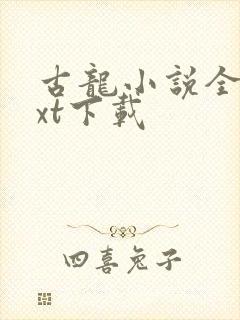 古龍小說全
xt下載
四喜兔子